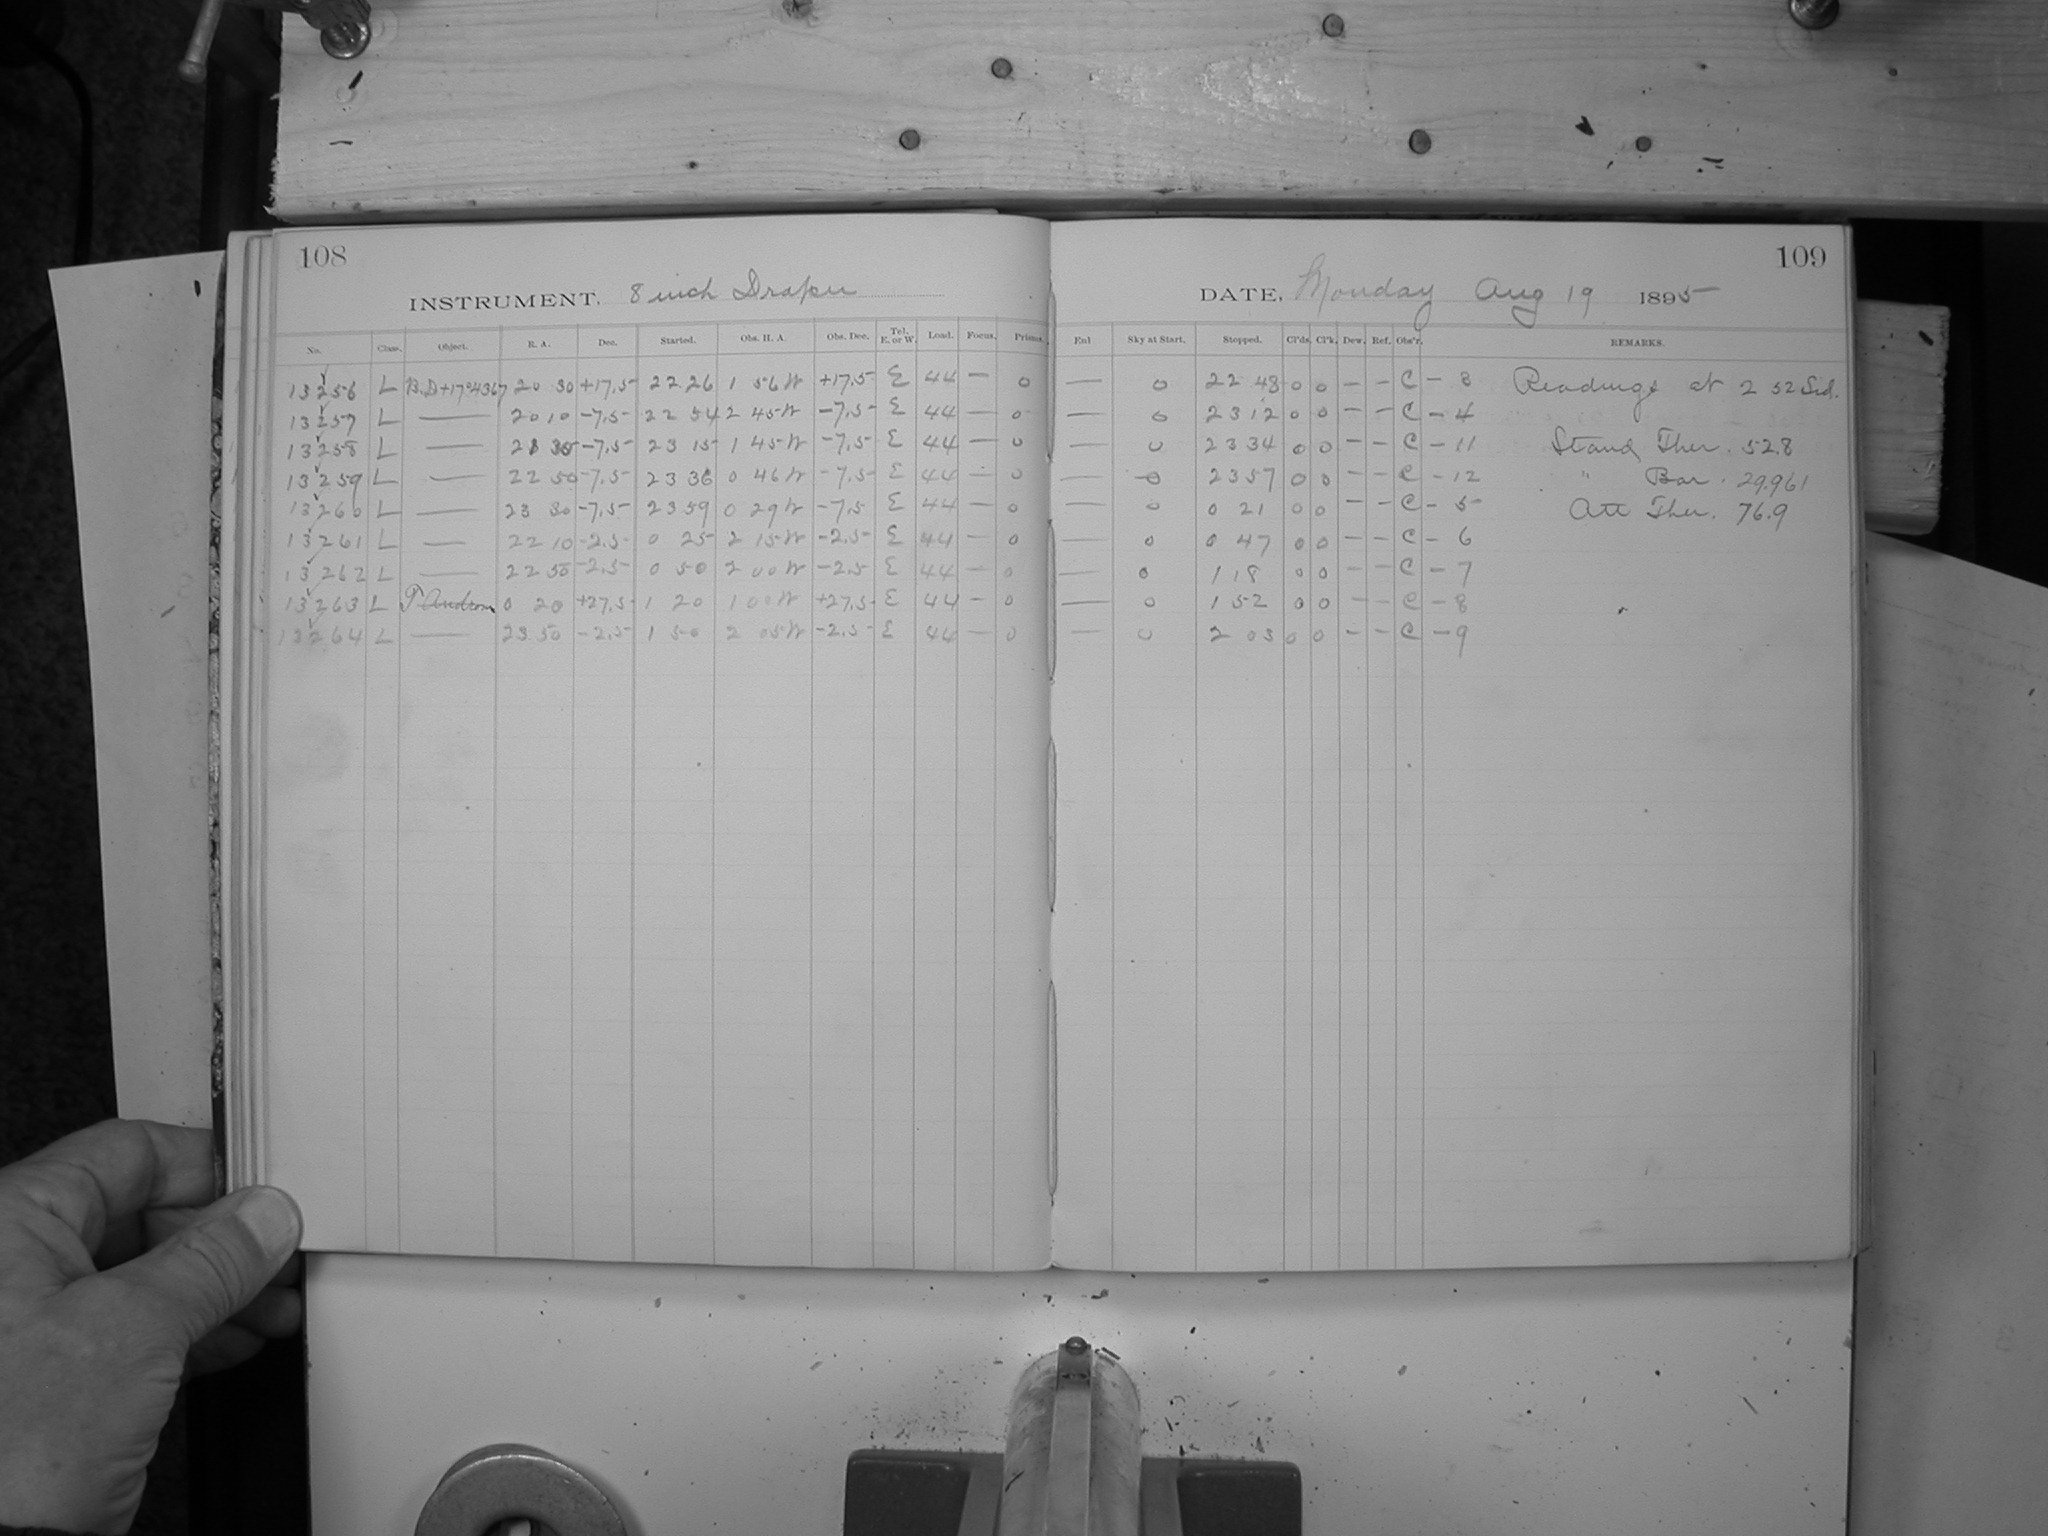 108
INSTRUMENT, 8 inch Draper
No. Class. Object. R. A. Dec. Started. Obs. H. A. Obs. Dec. Tel. E. or W. Load. Focus. Prisms.
13256 L B.D+17°4367 20 30 +17.5 22 26 1 56 W +17.5 E 44 — 0
13257 L — 20 10 -7.5 22 54 2 45 W -7.5 E 44 — 0
13258 L — 21 35 -7.5 23 15 1 45 W -7.5 E 44 — 0
13259 L — 22 50 -7.5 23 36 0 46 W -7.5 E 44 — 0
13260 L — 23 30 -7.5 23 59 0 29 W -7.5 E 44 — 0
13261 L — 22 10 -2.5 0 25 2 15 W -2.5 E 44 — 0
13262 L — 22 50 -2.5 0 50 2 00 W -2.5 E 44 — 0
13263 L T Androm 0 20 +27.5 1 20 1 00 W +27.5 E 44 — 0
13264 L — 23 50 -2.5 1 50 2 05 W -2.5 E 44 — 0
109
DATE, Monday Aug 19 1895
Exl Sky at Start. Stopped. Cl'ds. Cl'k. Dew. Ref. Obs'r. REMARKS.
— 0 22 48 0 0 — — C — 3 Readings at 2 52 Sid.
— 0 23 12 0 0 — — C — 4
— 0 23 34 0 0 — — C — 11 Stand Ther. 52.8
— 0 23 57 0 0 — — C — 12 " Bar. 29.961
— 0 0 21 0 0 — — C — 5 Att Ther. 76.9
— 0 0 47 0 0 — — C — 6
— 0 1 18 0 0 — — C — 7
— 0 1 52 0 0 — — C — 8
— 0 2 03 0 0 — — C — 9